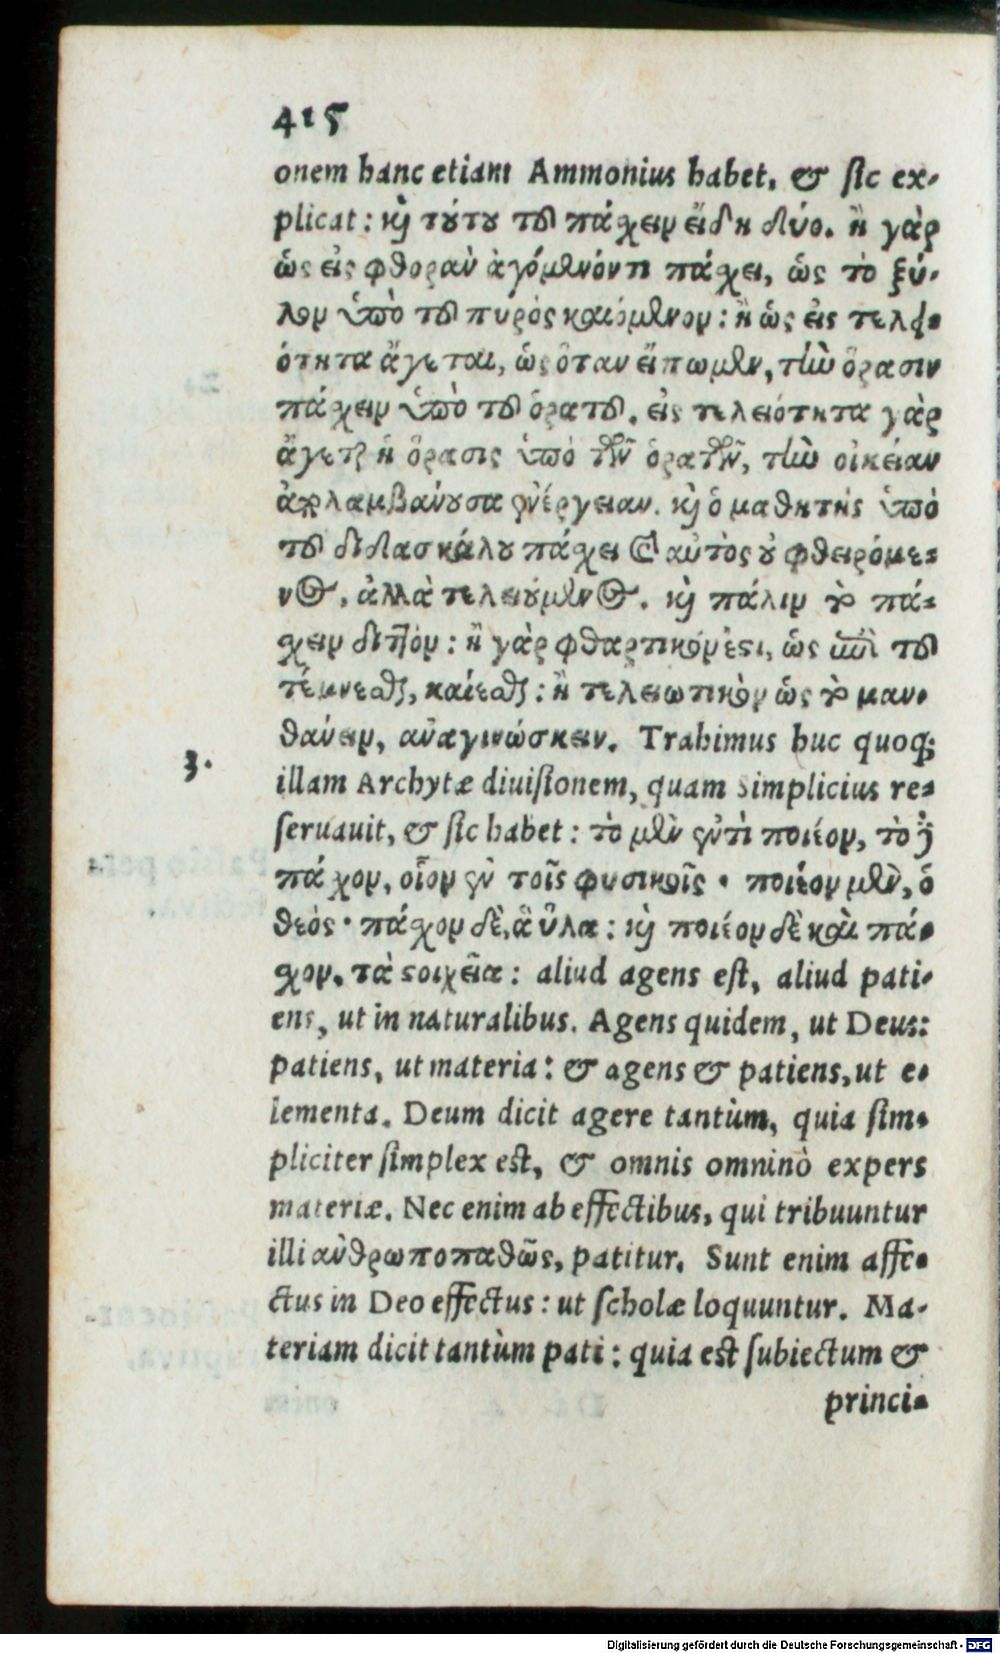 415
onem hanc etiam Ammonius habet, & sic ex-
plicat: κỳ τούτου τοῦ πάχειν εἴδη δύο. ἢ γὰρ
ὡς εἰς φθορὰν ἀγόμενόν τι πάχει, ὡς τὸ ξύ-
λον ὑπὸ τοῦ πυρὸς καιόμενον: ἢ ὡς εἰς τελει-
ότητα ἄγεται, ὡς ὅταν εἴπωμεν, τὴν ὅρασιν
πάχειν ὑπὸ τοῦ ὁρατοῦ. εἰς τελειότητα γὰρ
ἄγεται ἡ ὅρασις ὑπὸ τῶν ὁρατῶν, τὴν οἰκείαν
ἀπολαμβάνουσα ἐνέργειαν. καὶ ὁ μαθητὴς ὑπὸ
τοῦ διδασκάλου πάχει αὐτὸς οὐ φθειρόμε-
νος, ἀλλὰ τελειούμενος. καὶ πάλιν τὸ πά-
χειν διττόν: ἢ γὰρ φθαρτικόν ἐστι, ὡς ἐπὶ τοῦ
τέμνεσθαι, καίεσθαι: ἢ τελειωτικὸν ὡς τὸ μαν-
θάνειν, ἀναγινώσκειν. Trahimus huc quoq;
3.
illam Archytæ diuisionem, quam Simplicius re-
seruauit, & sic habet: τὸ μὲν ἐντὶ ποιέον, τὸ δὲ
πάχον, οἷον ἐν τοῖς φυσικοῖς · ποιέον μὲν, ὁ
θεός · πάχον δὲ, ἃ ὕλα: καὶ ποιέον δὲ καὶ πά-
χον, τὰ στοιχεῖα: aliud agens est, aliud pati-
ens, ut in naturalibus. Agens quidem, ut Deus:
patiens, ut materia: & agens & patiens, ut e-
lementa. Deum dicit agere tantùm, quia sim-
pliciter simplex est, & omnis omninò expers
materiæ. Nec enim ab effectibus, qui tribuuntur
illi ἀνθρωποπαθῶς, patitur. Sunt enim affe-
ctus in Deo effectus: ut scholæ loquuntur. Ma-
teriam dicit tantùm pati: quia est subiectum &
princi-
Digitalisierung gefördert durch die Deutsche Forschungsgemeinschaft - DFG